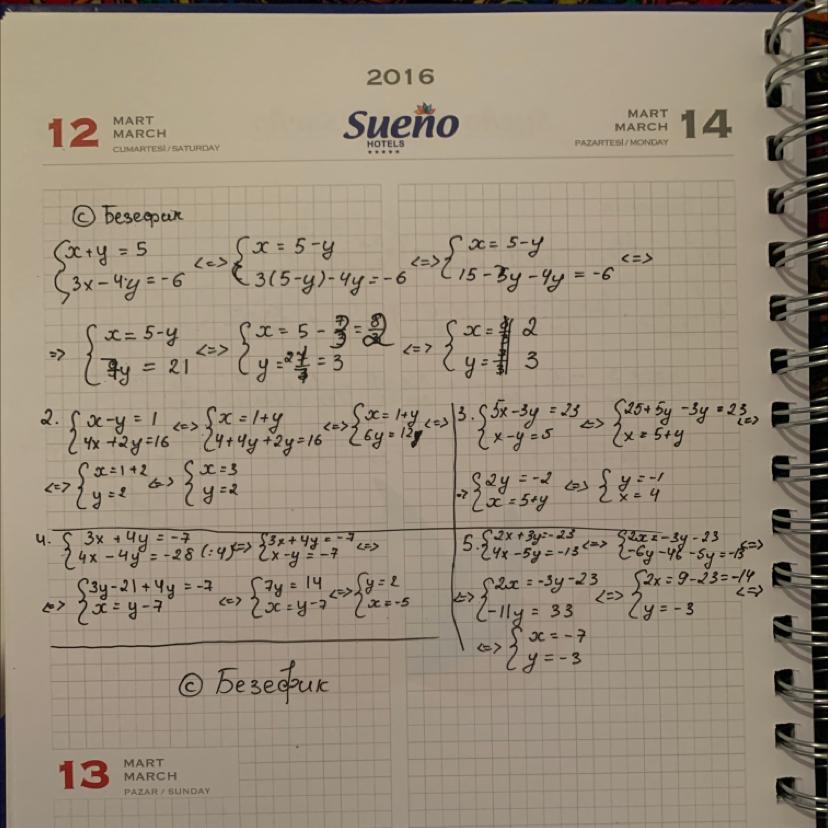 2016
12 MART MARCH CUMARTESİ / SATURDAY
Sueño HOTELS
MART MARCH PAZARTESİ / MONDAY 14
© Безефик
{x+y = 5 {3x-4y = -6 <=> {x = 5-y {3(5-y)-4y = -6 <=> {x = 5-y {15-3y-4y = -6 <=>
=> {x = 5-y {7y = 21 <=> {x = 5 - = {y = = 3 <=> {x = 2 {y = 3
2. {x-y = 1 {4x+2y=16 <=> {x = 1+y {4+4y+2y=16 <=> {x = 1+y {6y = 12 <=>
<=> {x=1+2 {y=2 <=> {x=3 {y=2
3. {5x-3y = 23 {x-y = 5 <=> {25+5y-3y = 23 {x = 5+y <=>
=> {2y = -2 {x = 5+y <=> {y = -1 {x = 4
4. {3x+4y = -7 {4x-4y = -28 (:4) <=> {3x+4y = -7 {x-y = -7 <=>
<=> {3y-21+4y = -7 {x = y-7 <=> {7y = 14 {x = y-7 <=> {y = 2 {x = -5
5. {2x+3y=-23 {4x-5y = -13 <=> {2x = -3y-23 {-6y-46-5y = -13 <=>
<=> {2x = -3y-23 {-11y = 33 <=> {2x = 9-23 = -14 {y = -3 <=>
<=> {x = -7 {y = -3
© Безефик
13 MART MARCH PAZAR / SUNDAY